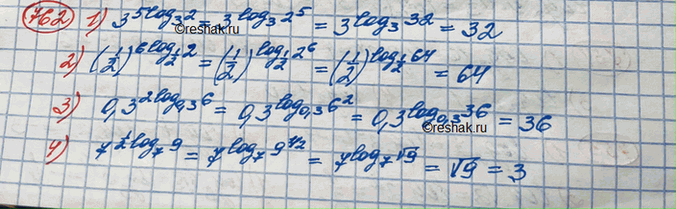 762 1) 3^{5log_3 2} = 3^{log_3 2^5} = 3^{log_3 32} = 32
©reshak.ru
2) (1/2)^{6log_{1/2} 2} = (1/2)^{log_{1/2} 2^6} = (1/2)^{log_{1/2} 64} = 64
3) 0,3^{2log_{0,3} 6} = 0,3^{log_{0,3} 6^2} = 0,3^{log_{0,3} 36} = 36
©reshak.ru
4) 7^{1/2 log_7 9} = 7^{log_7 9^{1/2}} = 7^{log_7 √9} = √9 = 3